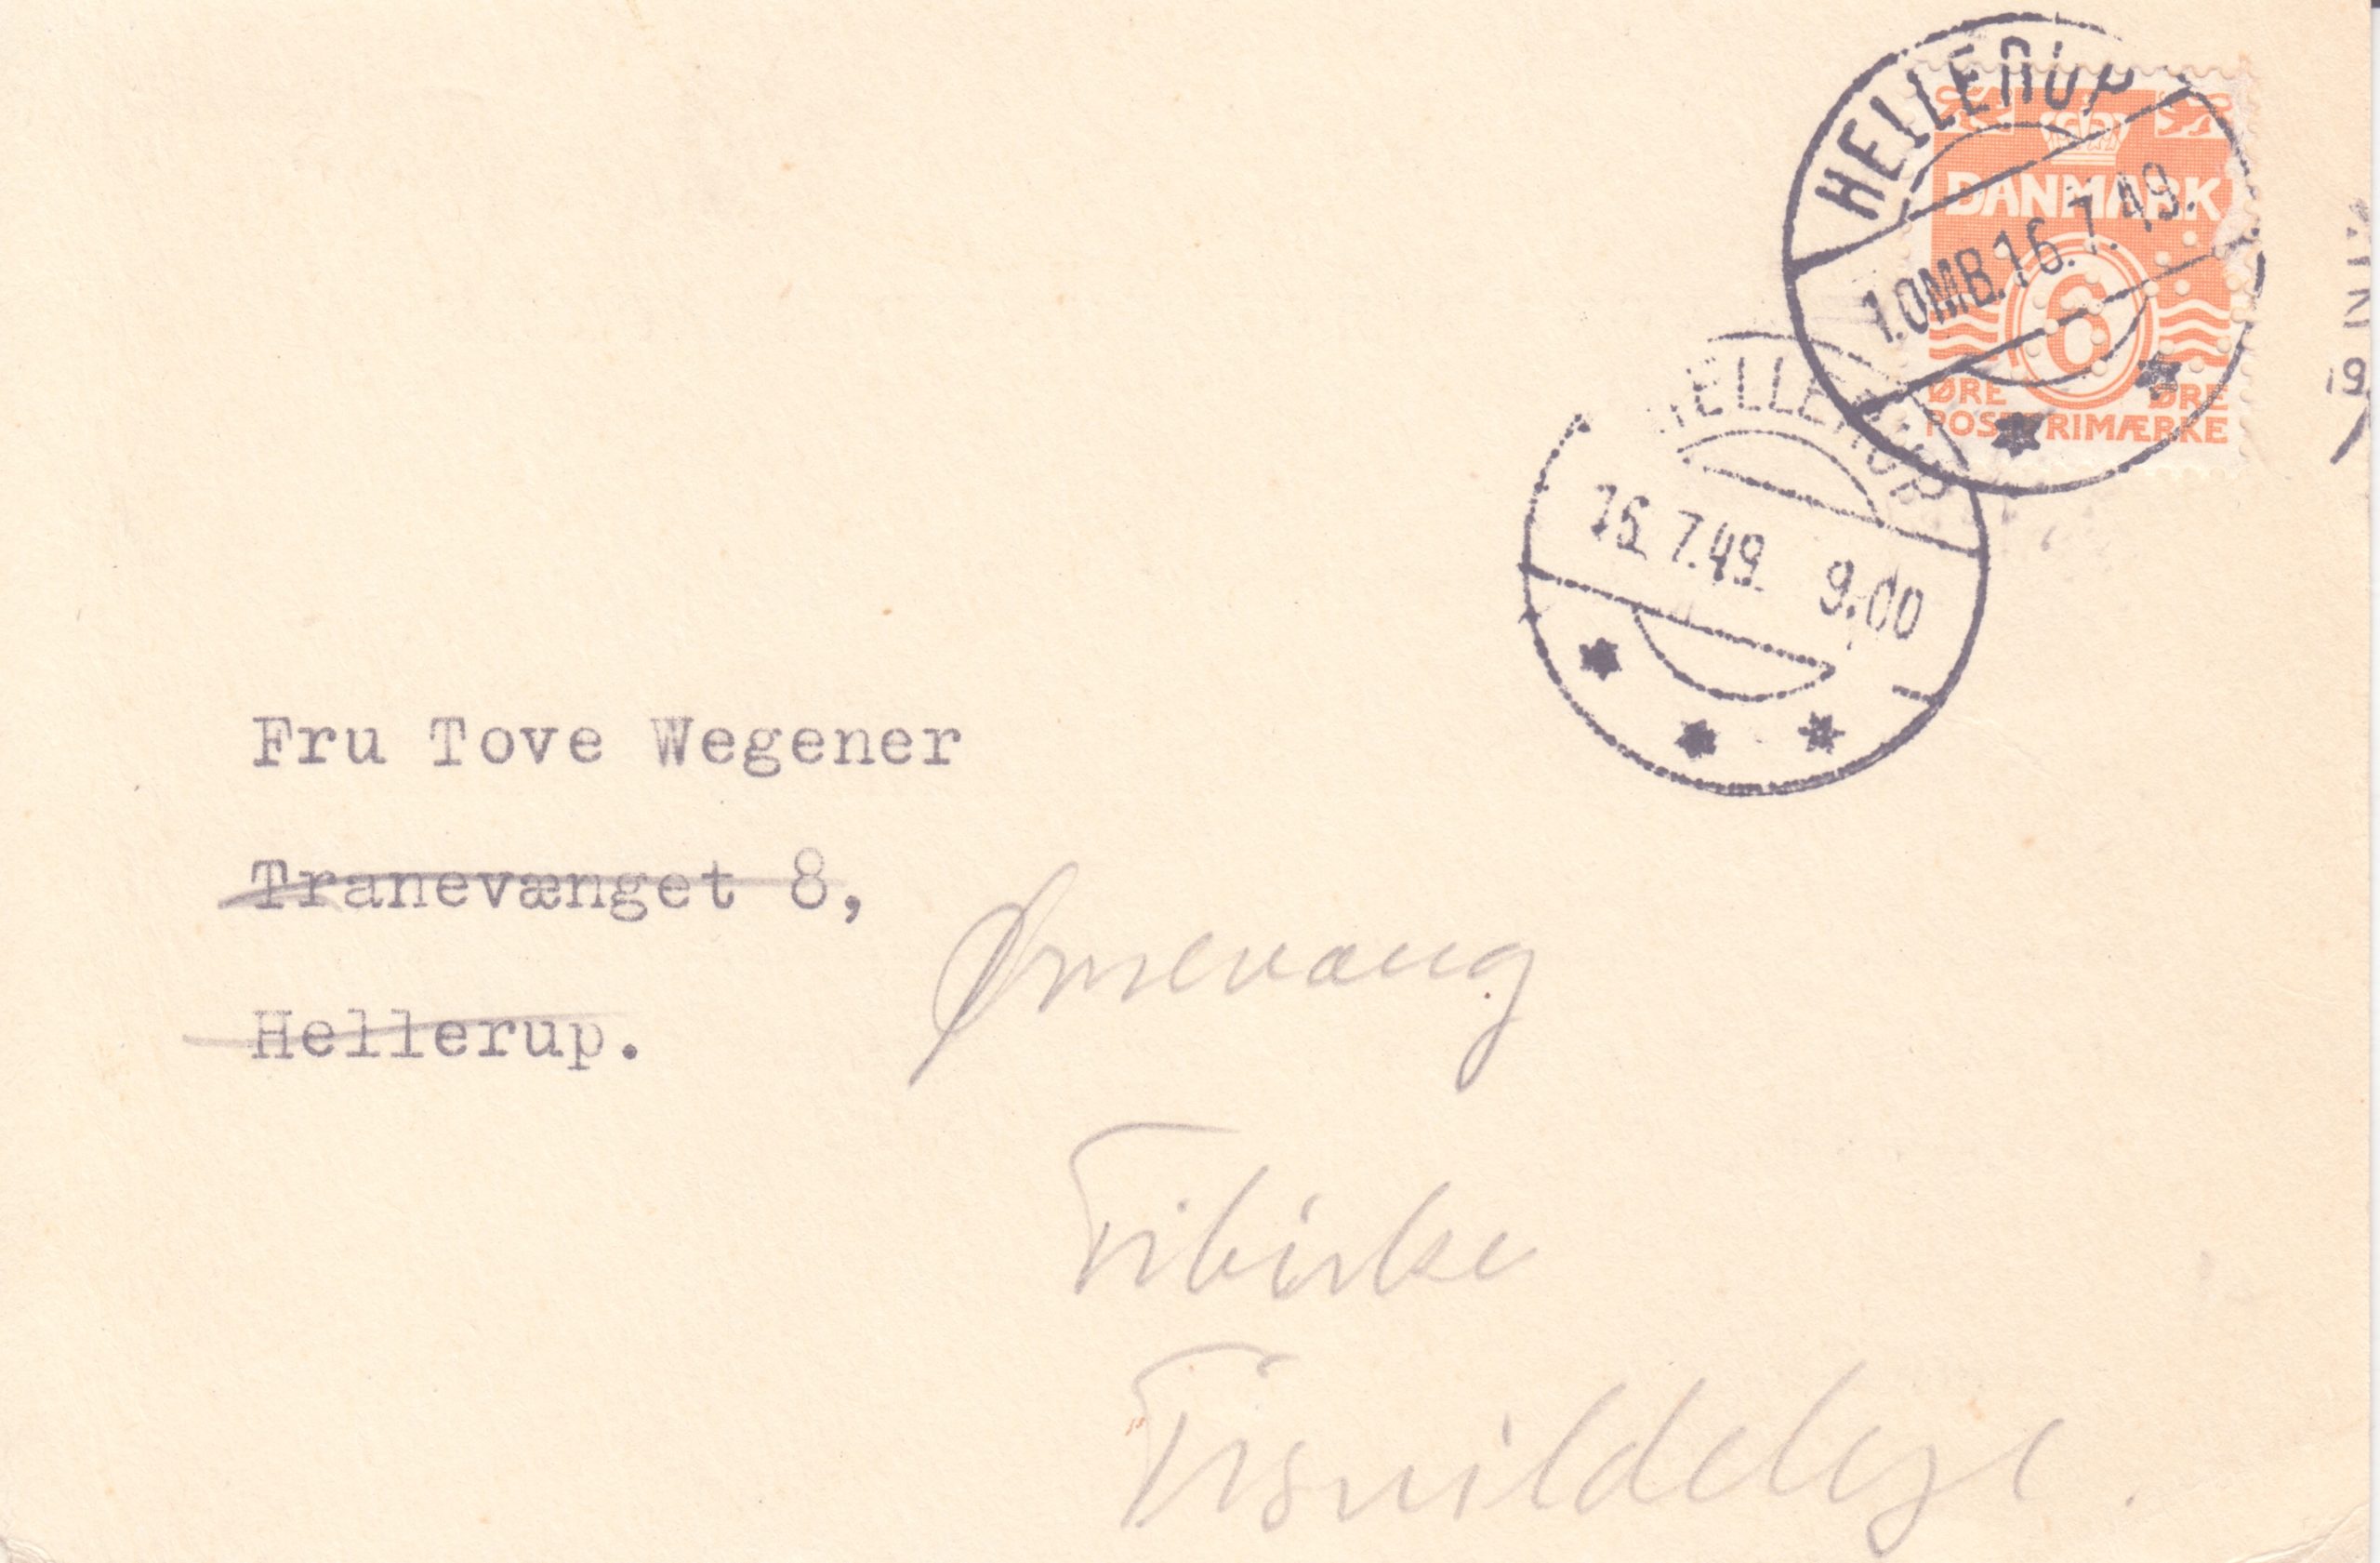 HELLERUP
1.OMB.16.7.49.
DANMARK
6
ØRE ØRE
POSTFRIMÆRKE
HELLERUP
16.7.49. 9.00
Fru Tove Wegener
Tranevænget 8,
Hellerup.
Ørnevang
Tibirke
Tisvildeleje.